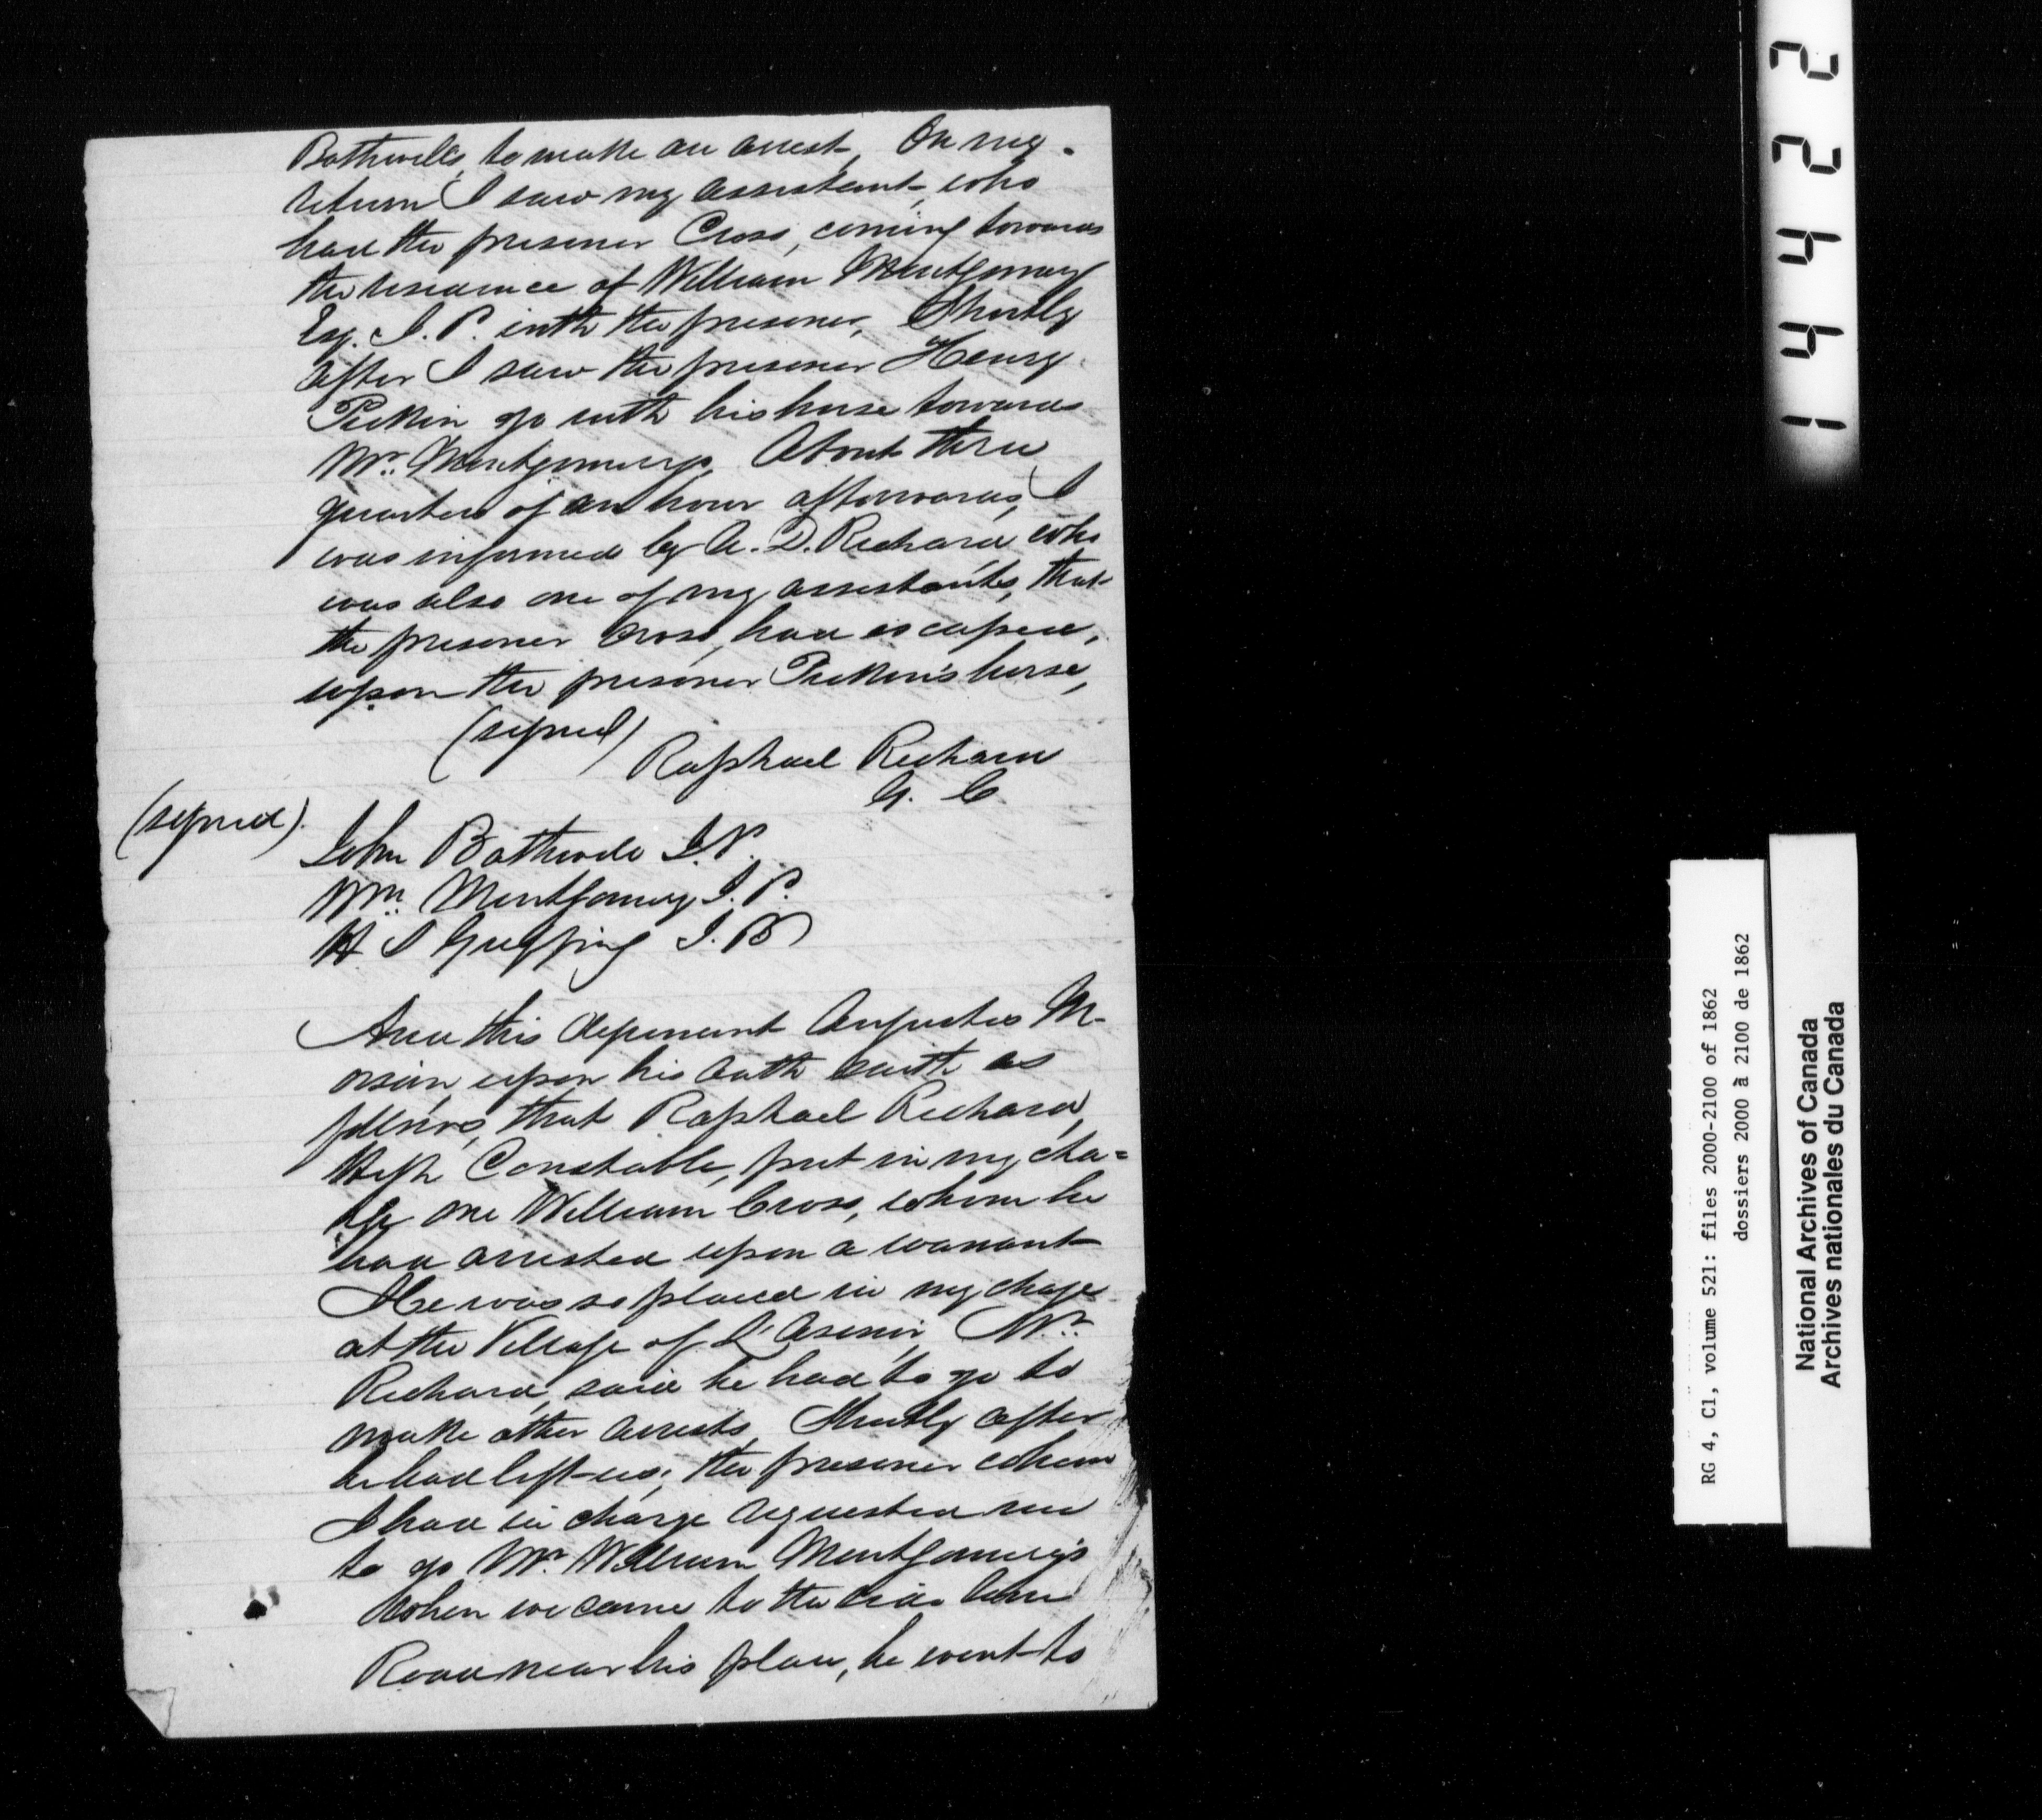 Bothwells, to make an arrest, On my
return I saw my assistant, who
had the prisoner Cross, coming towards
the residence of William Montgomery
Esq. J. P. with the prisoner, Shortly
after I saw the prisoner Henry
go with his horse towards
Mr. Montgomerys. About three
quarters of an hour afterwards, I
was informed by A. D. Richard who
was also one of my assistants, that
the prisoner Cross, had escaped,
upon the prisoner horse,
(signed)
Raphael Richard
(signed)
John Bothwell J.P.
Wm. Montgomery J. P.
J. P.
And this deponent Augustus M-
upon his oath saith as
follows, that Raphael Richard,
High Constable, put in my cha=
rge one William Cross, whom he
had arrested upon a warrant
He was so placed in my charge
at the Village of L'Avenir, Mr.
Richard, said he had to go to
make other arrests, Shortly after
he had left us, the prisoner whom
I had in charge requested me
to go Mr. William Montgomery's
when we came to the
Road near his place, he went to
14422
RG 4, C1, volume 521: files 2000-2100 of 1862
dossiers 2000 à 2100 de 1862
National Archives of Canada
Archives nationales du Canada